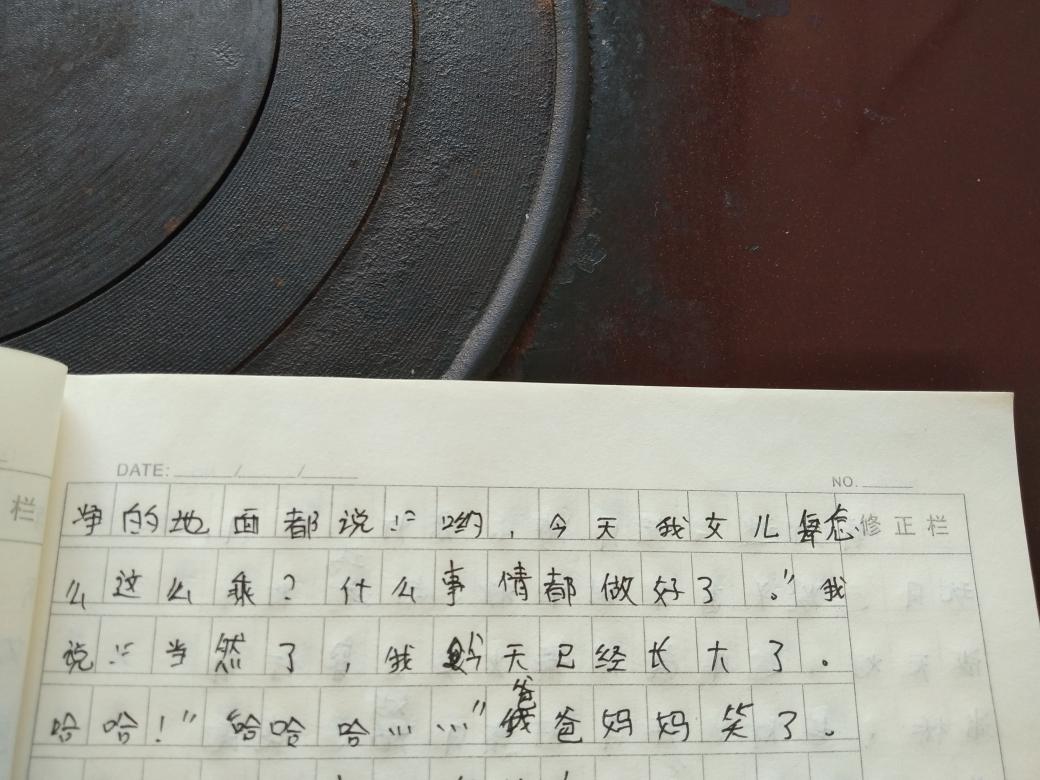 栏
DATE: / /
NO.
净的地面都说:“哟，今天我女儿每怎
修正栏
么这么乘？什么事情都做好了。”我
说:“当然了，我今天已经长大了。
爸
哈哈！”哈哈哈……”爸妈妈笑了。